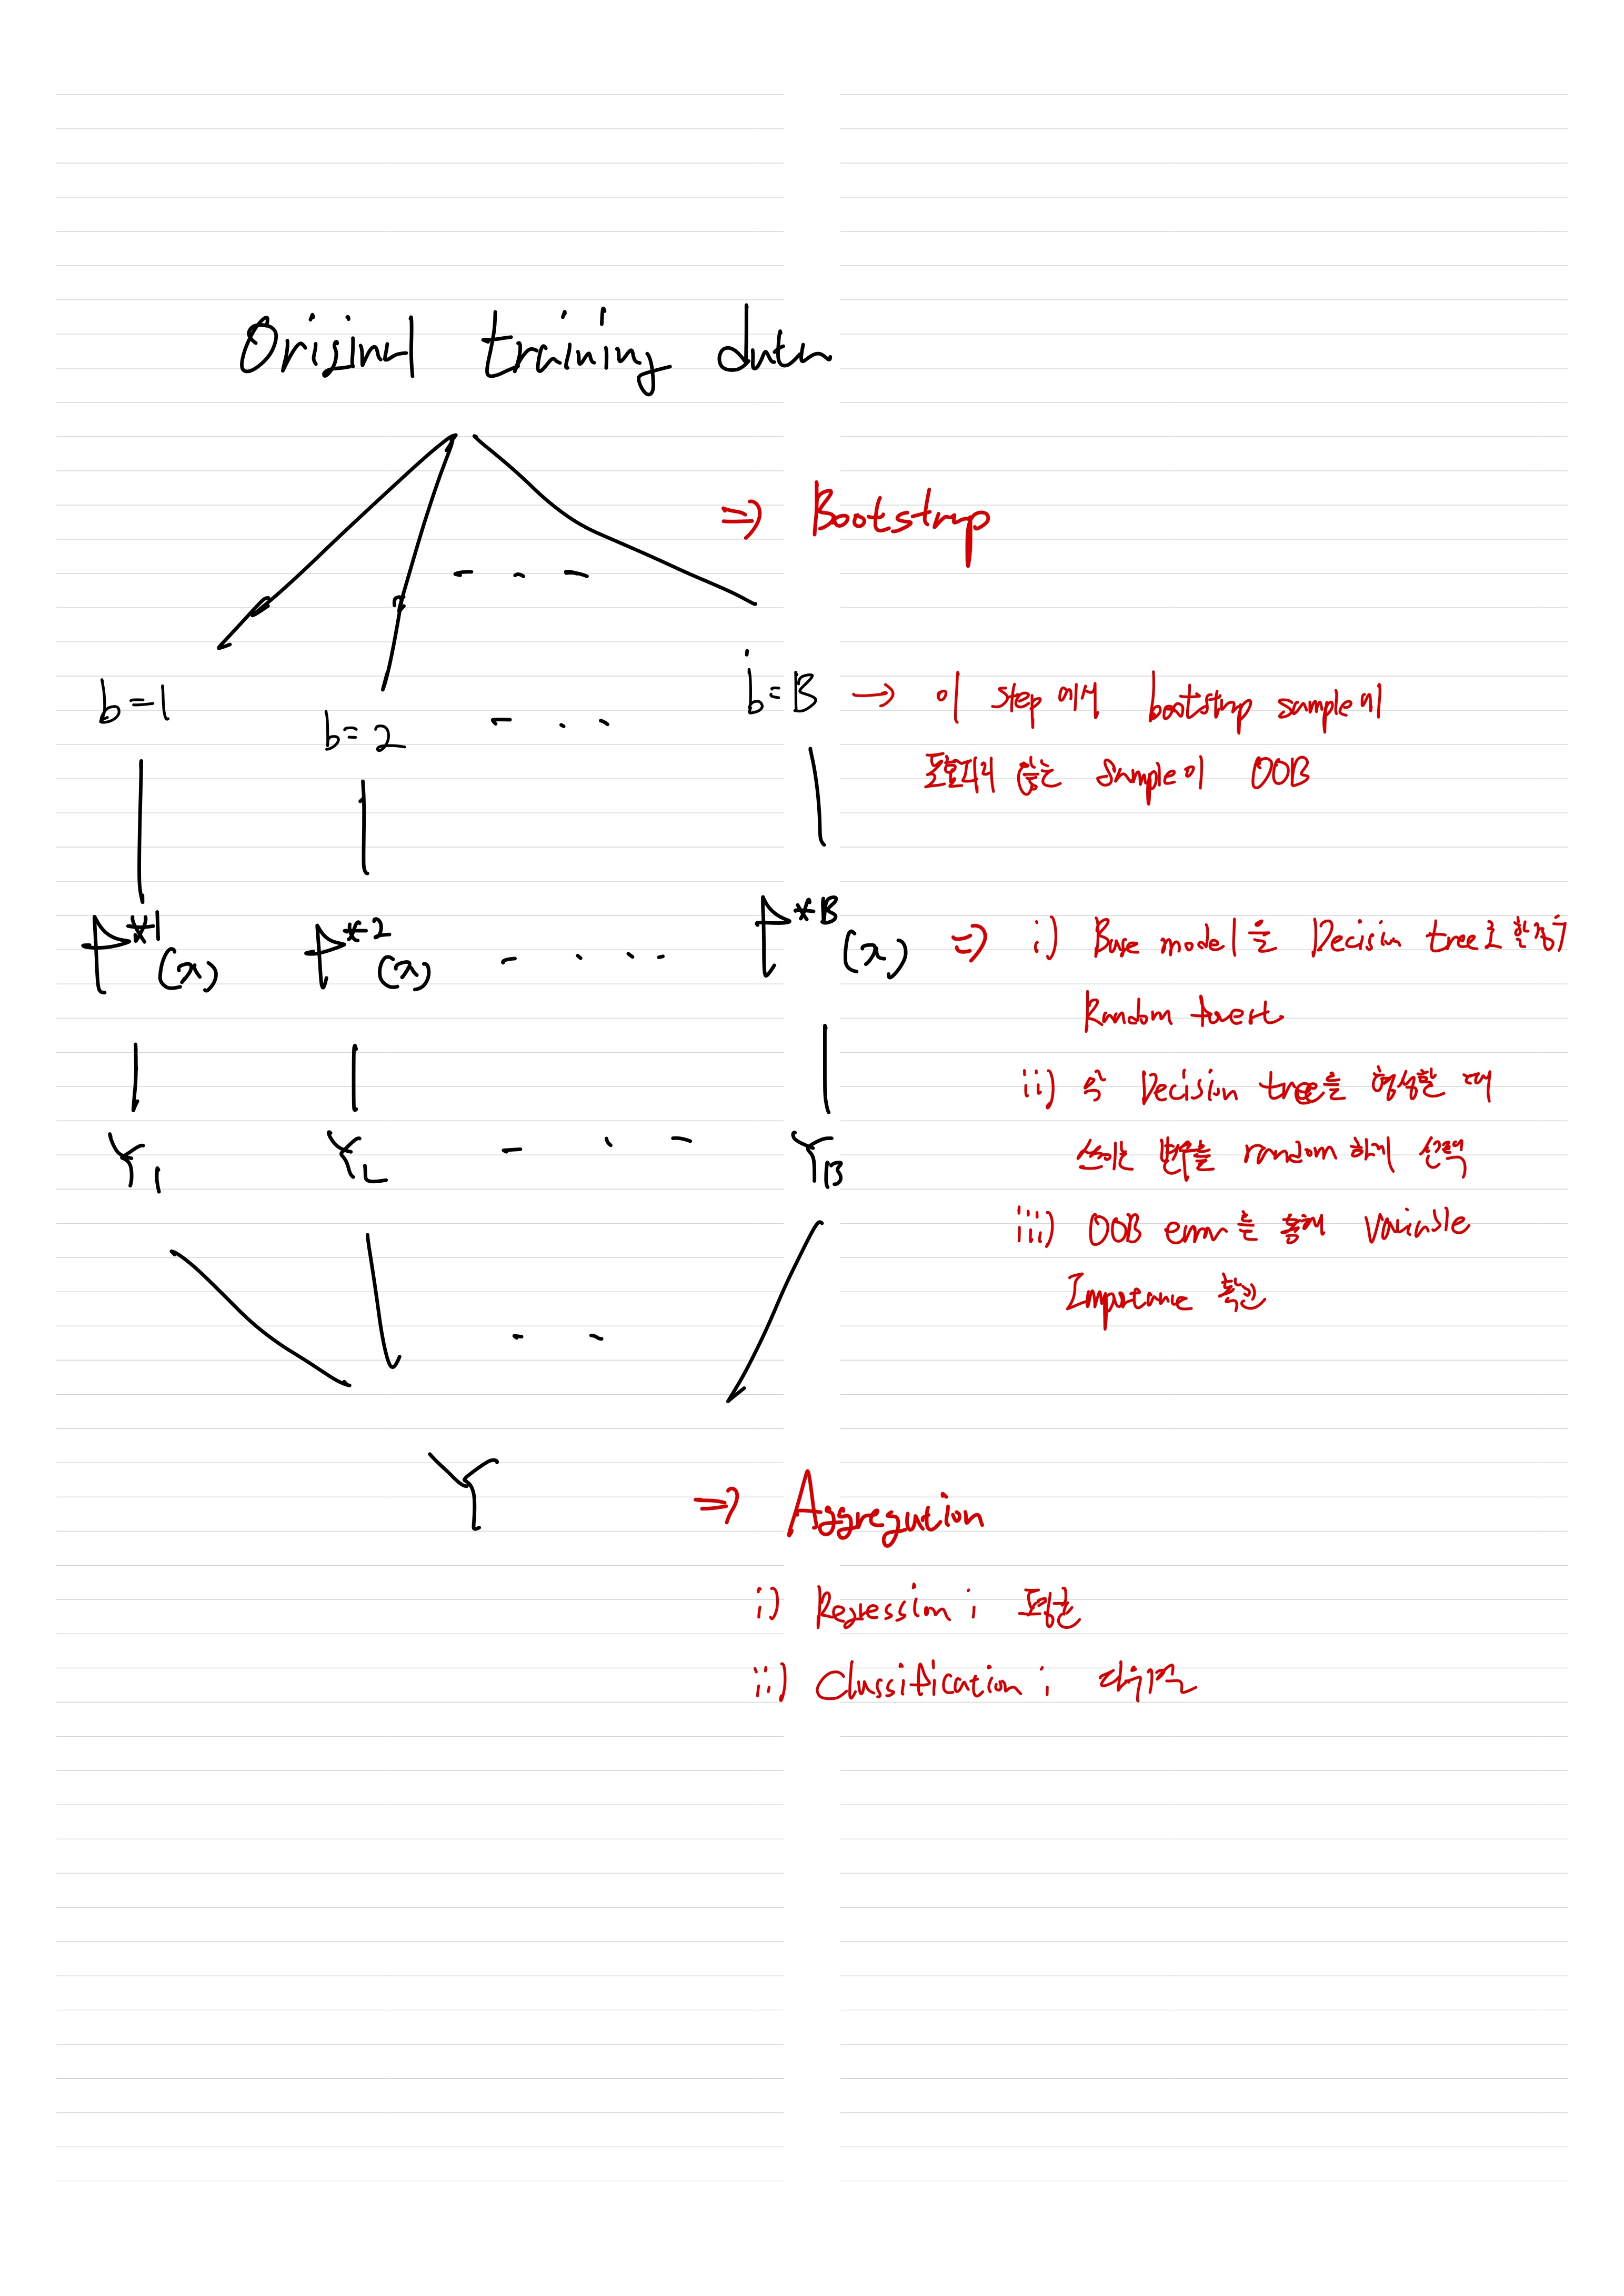 Original training data
⇒ Bootstrap
b=1 b=2 b=B → 이 step에서 bootstrap sample에
포함되지 않는 Sample이 OOB
f*1(x) f*2(x) f*B(x) ⇒ i) Base model을 Decision tree로 한 경우
Random forest
ii) 각 Decision tree를 형성할 때
Y1 Y2 YB
쓰이는 변수를 random하게 선택
iii) OOB error를 통해 Variable
Importance 확인
Y ⇒ Aggregation
i) Regression ; 평균
ii) Classification ; 다수결